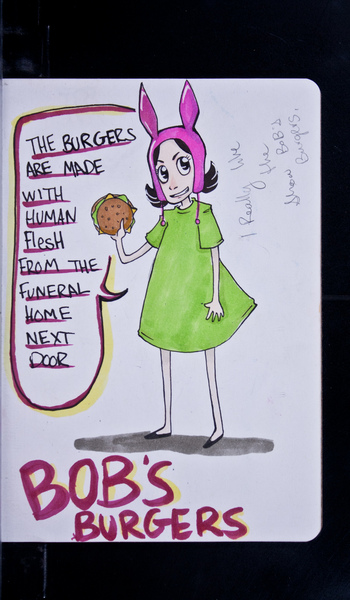 THE BURGERS
ARE MADE
WITH
HUMAN
FlesH
FROM THE
FUNERAL
HOME
NEXT
DOOR
I Really like
the
show BOB'S
Burgers.
BOB'S
BURGERS